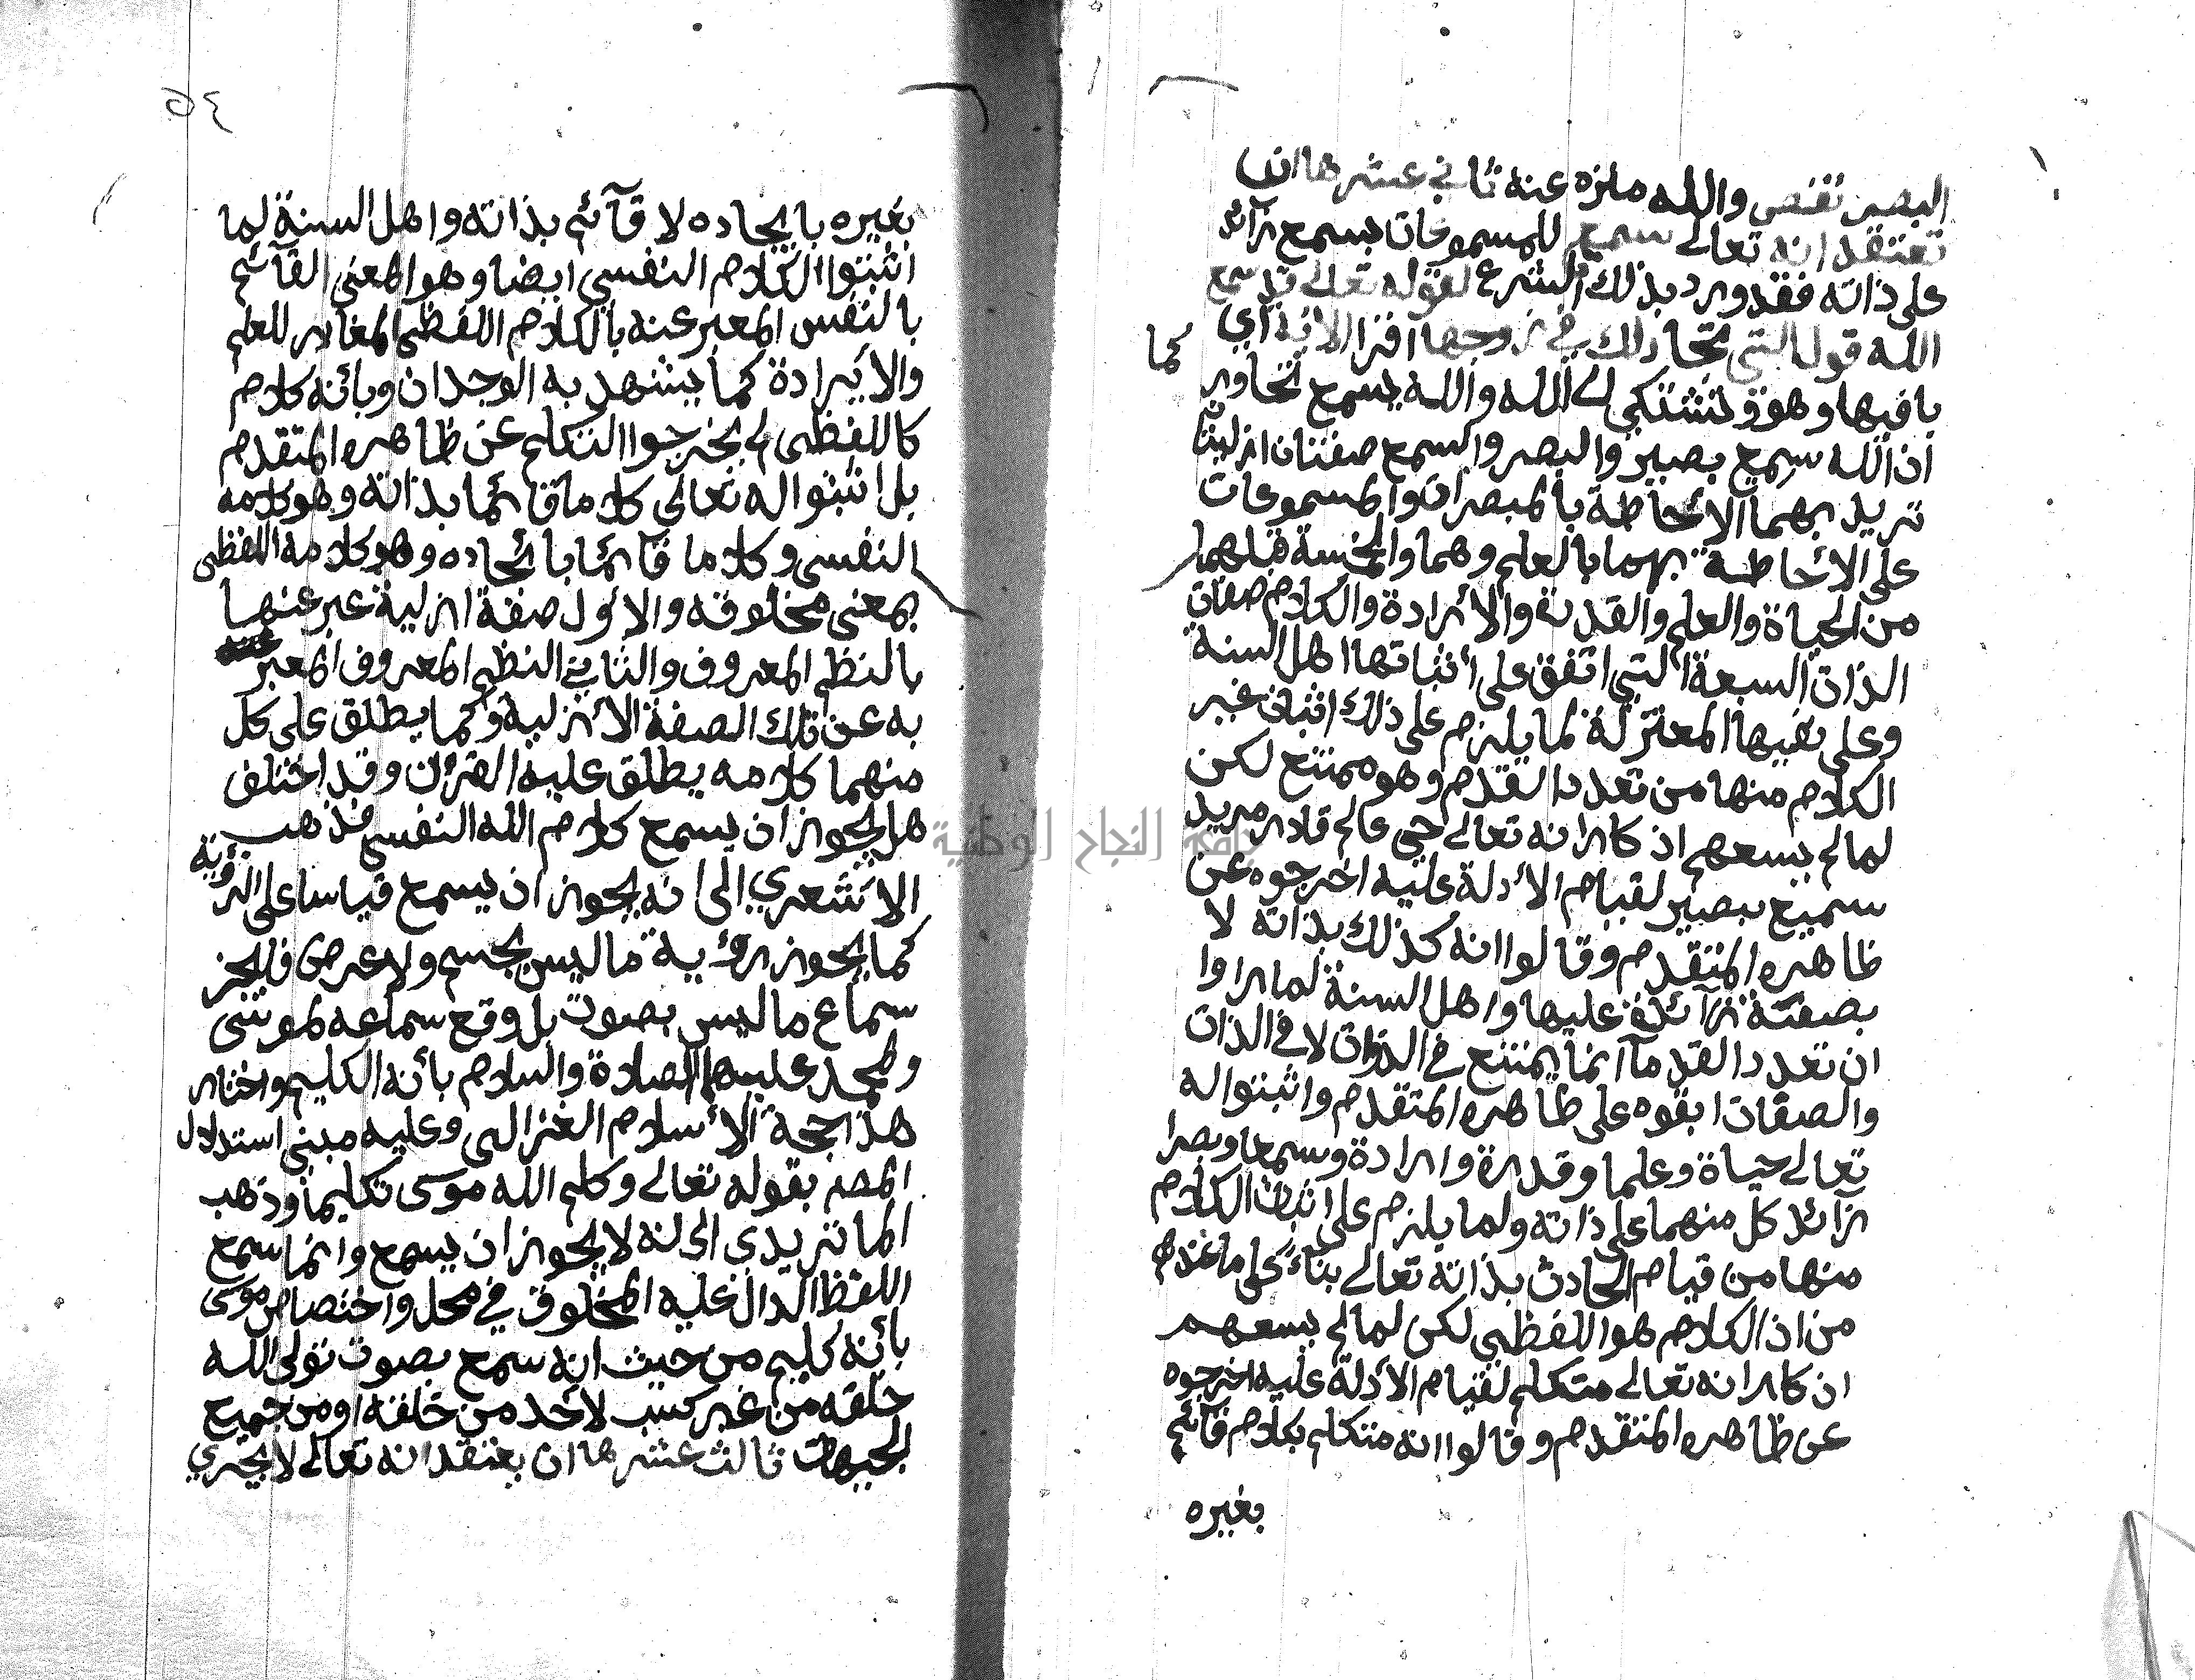 البصر نقص والله منزه عنه ثاني عشرها ان
تعتقد انه تعالى سميع للمسموعات بسمع زائد
على ذاته فقد ورد بذلك الشرع لقوله تعالى قد سمع
الله قول التي تجادلك في زوجها اقرا الاية اي
كما
بافيها وهو وتشتكي الى الله والله يسمع تحاور
ان الله سميع بصير والبصر والسمع صفتان ازليتا
تريد بهما الاحاطة بالمبصرات والمسموعات
على الاحاطة بهما بالعلم وهما والخمسة قبلهما
من الحياة والعلم والقدرة والارادة والكلام صفات
الذات السبعة التي اتفق على اثباتها اهل السنة
وعلى نفيها المعتزلة لما يلزم على ذلك اثبات غير
الكلام منها من تعدد القدم وهو ممتنع لكن
لما لم يسعهم اذ كارانه تعالى حي عالم قادر مريد
سميع بصير لقيام الأدلة عليه اخرجوه عن
ظاهره المتقدم وقالوا انه كذلك بذاته لا
بصفة زآئدة عليها واهل السنة لما راوا
ان تعدد القدمآ انما يمتنع في الذوات لا في الذات
والصفات ابقوه على ظاهره المتقدم واثبتوا له
تعالى حياة وعلما وقدرة وارادة وسمعا وبصرا
زآئد كل منهما على ذاته ولما يلزم على اثبات الكلام
منها من قيام الحادث بذاته تعالى بناء على ما عندهم
من ان الكلام هو اللفظي لكن لما لم يسعهم
ان كارانه تعالى متكلم لقيام الأدلة عليه اخرجوه
عن ظاهره المتقدم وقالوا انه متكلم بكلام قآئم
بغيره
٥٤
بغيره بايجاده لا قآئم بذاته واهل السنة لما
اثبتوا الكلام النفسي ايضا وهو المعنى القآئم
بالنفس المعبر عنه بالكلام اللفظي المغاير للعلم
والارادة كما يشهد به الوجدان وبأنه كلام
كاللفظي لم يخرجوا التكلم عن ظاهره المتقدم
بل اثبتوا له تعالى كلاما قائما بذاته وهو كلامه
النفسي وكلاما قائما بايحاده وهو كلامه اللفظي
بمعنى مخلوقه والاول صفة ازلية عبر عنها
بالنظم المعروف والثاني النظم المعروف المعبر
به عن تلك الصفة الأزلية وكما يطلق على كل
منهما كلامه يطلق عليه القرآن وقد اختلف
هل يجوز ان يسمع كلام الله النفسي فذهب
الاشعري الى انه يجوز ان يسمع قياسا على الرؤية
كما يجوز رؤية ما ليس بجسم ولا عرض فليجز
سماع ما ليس بصوت بل وقع سماعه لموسى
ومحمد عليهما الصلاة والسلام بأنه الكليم واختار
هذا حجة الأسلام الغزالي وعليه مبنى استدلال
المصم بقوله تعالى وكلم الله موسى تكليما وذهب
الماتريدي الى انه لا يجوز ان يسمع وانما سمع
اللفظ الدال عليه المخلوق في محل واختصاص موسى
بأنه كليم من حيث انه سمع بصوت تولى الله
خلقه من غير كسب لأحد من خلقه او من جميع
الجهات ثالث عشرها ان يعتقد انه تعالى لا يجري
جامعة النجاح الوطنية